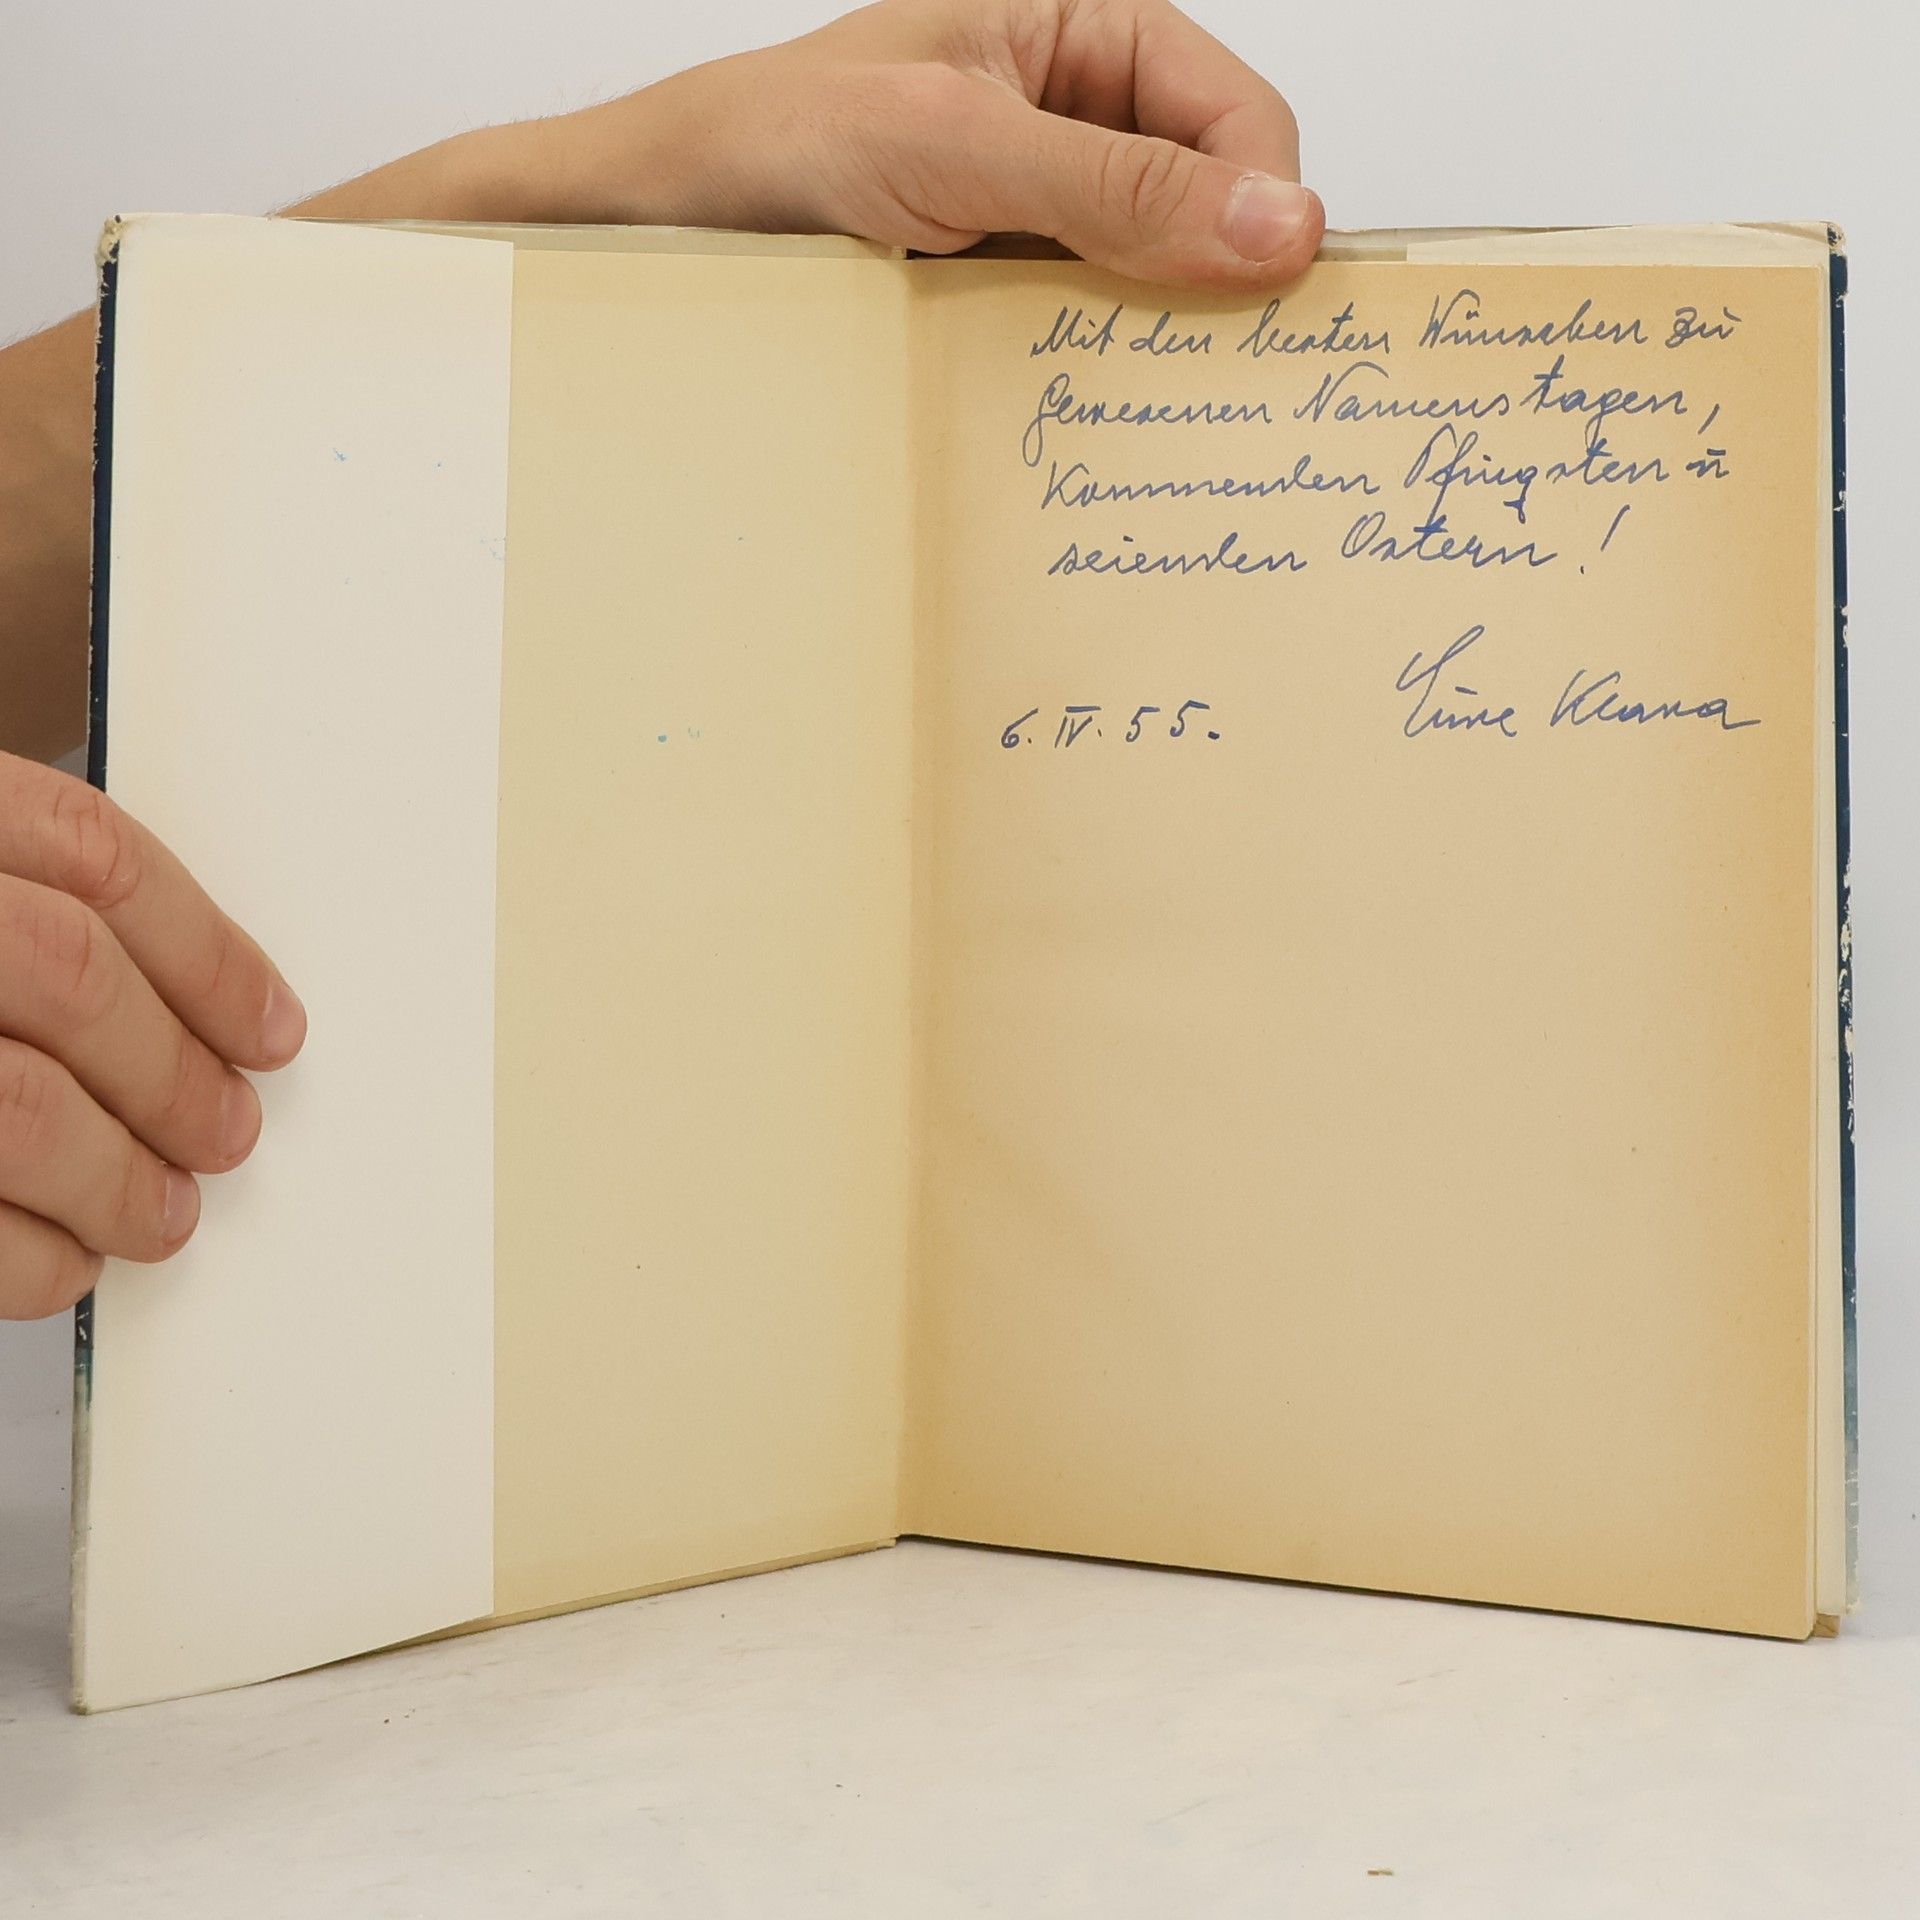 Mit den besten Wünschen zu
gewesenen Namenstagen,
Kommenden Pfingsten u
seienden Ostern!
6. IV. 55. Eure Klara